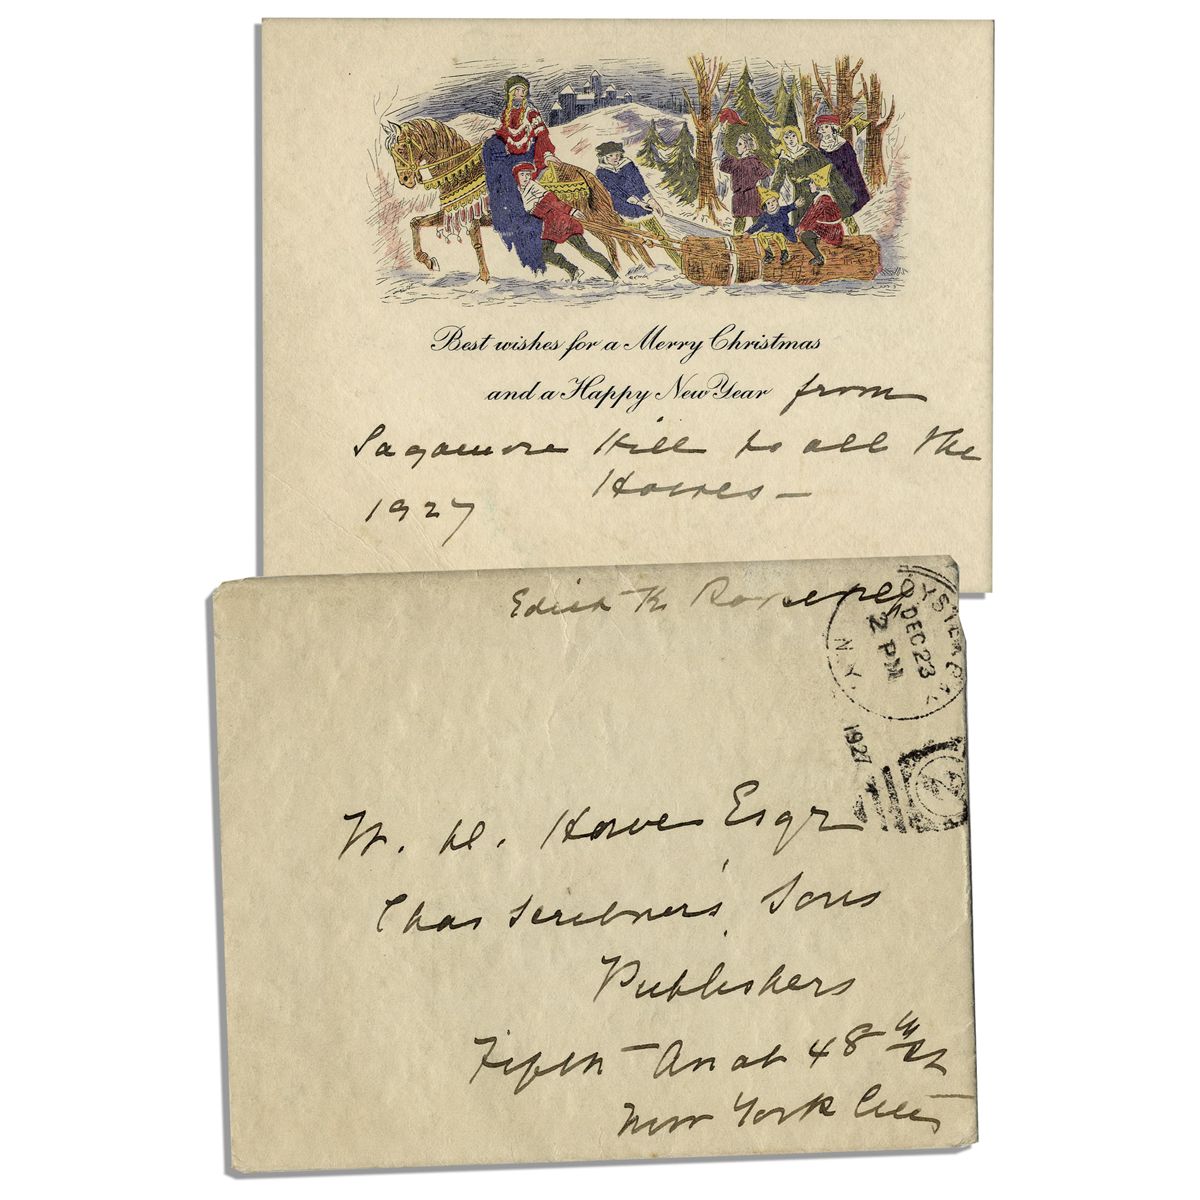 Best wishes for a Merry Christmas
and a Happy New Year from
Sagamore Hill to all the
Howes —
1927
Edith K. Roosevelt
OYSTER BAY
DEC 23
2 PM
N.Y.
1927
W. D. Howe Esqr
Chas Scribner's Sons
Publishers
Fifth Av at 48th St
New York City